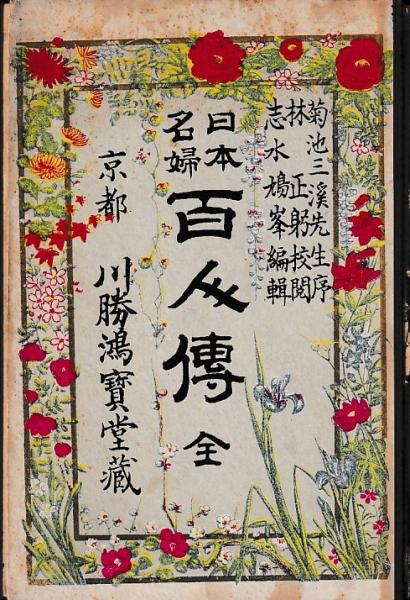 菊池三溪先生序
林正躬校閲
志水鳩峯編輯
日本
名婦
百人傳 全
京都 川勝鴻寶堂藏